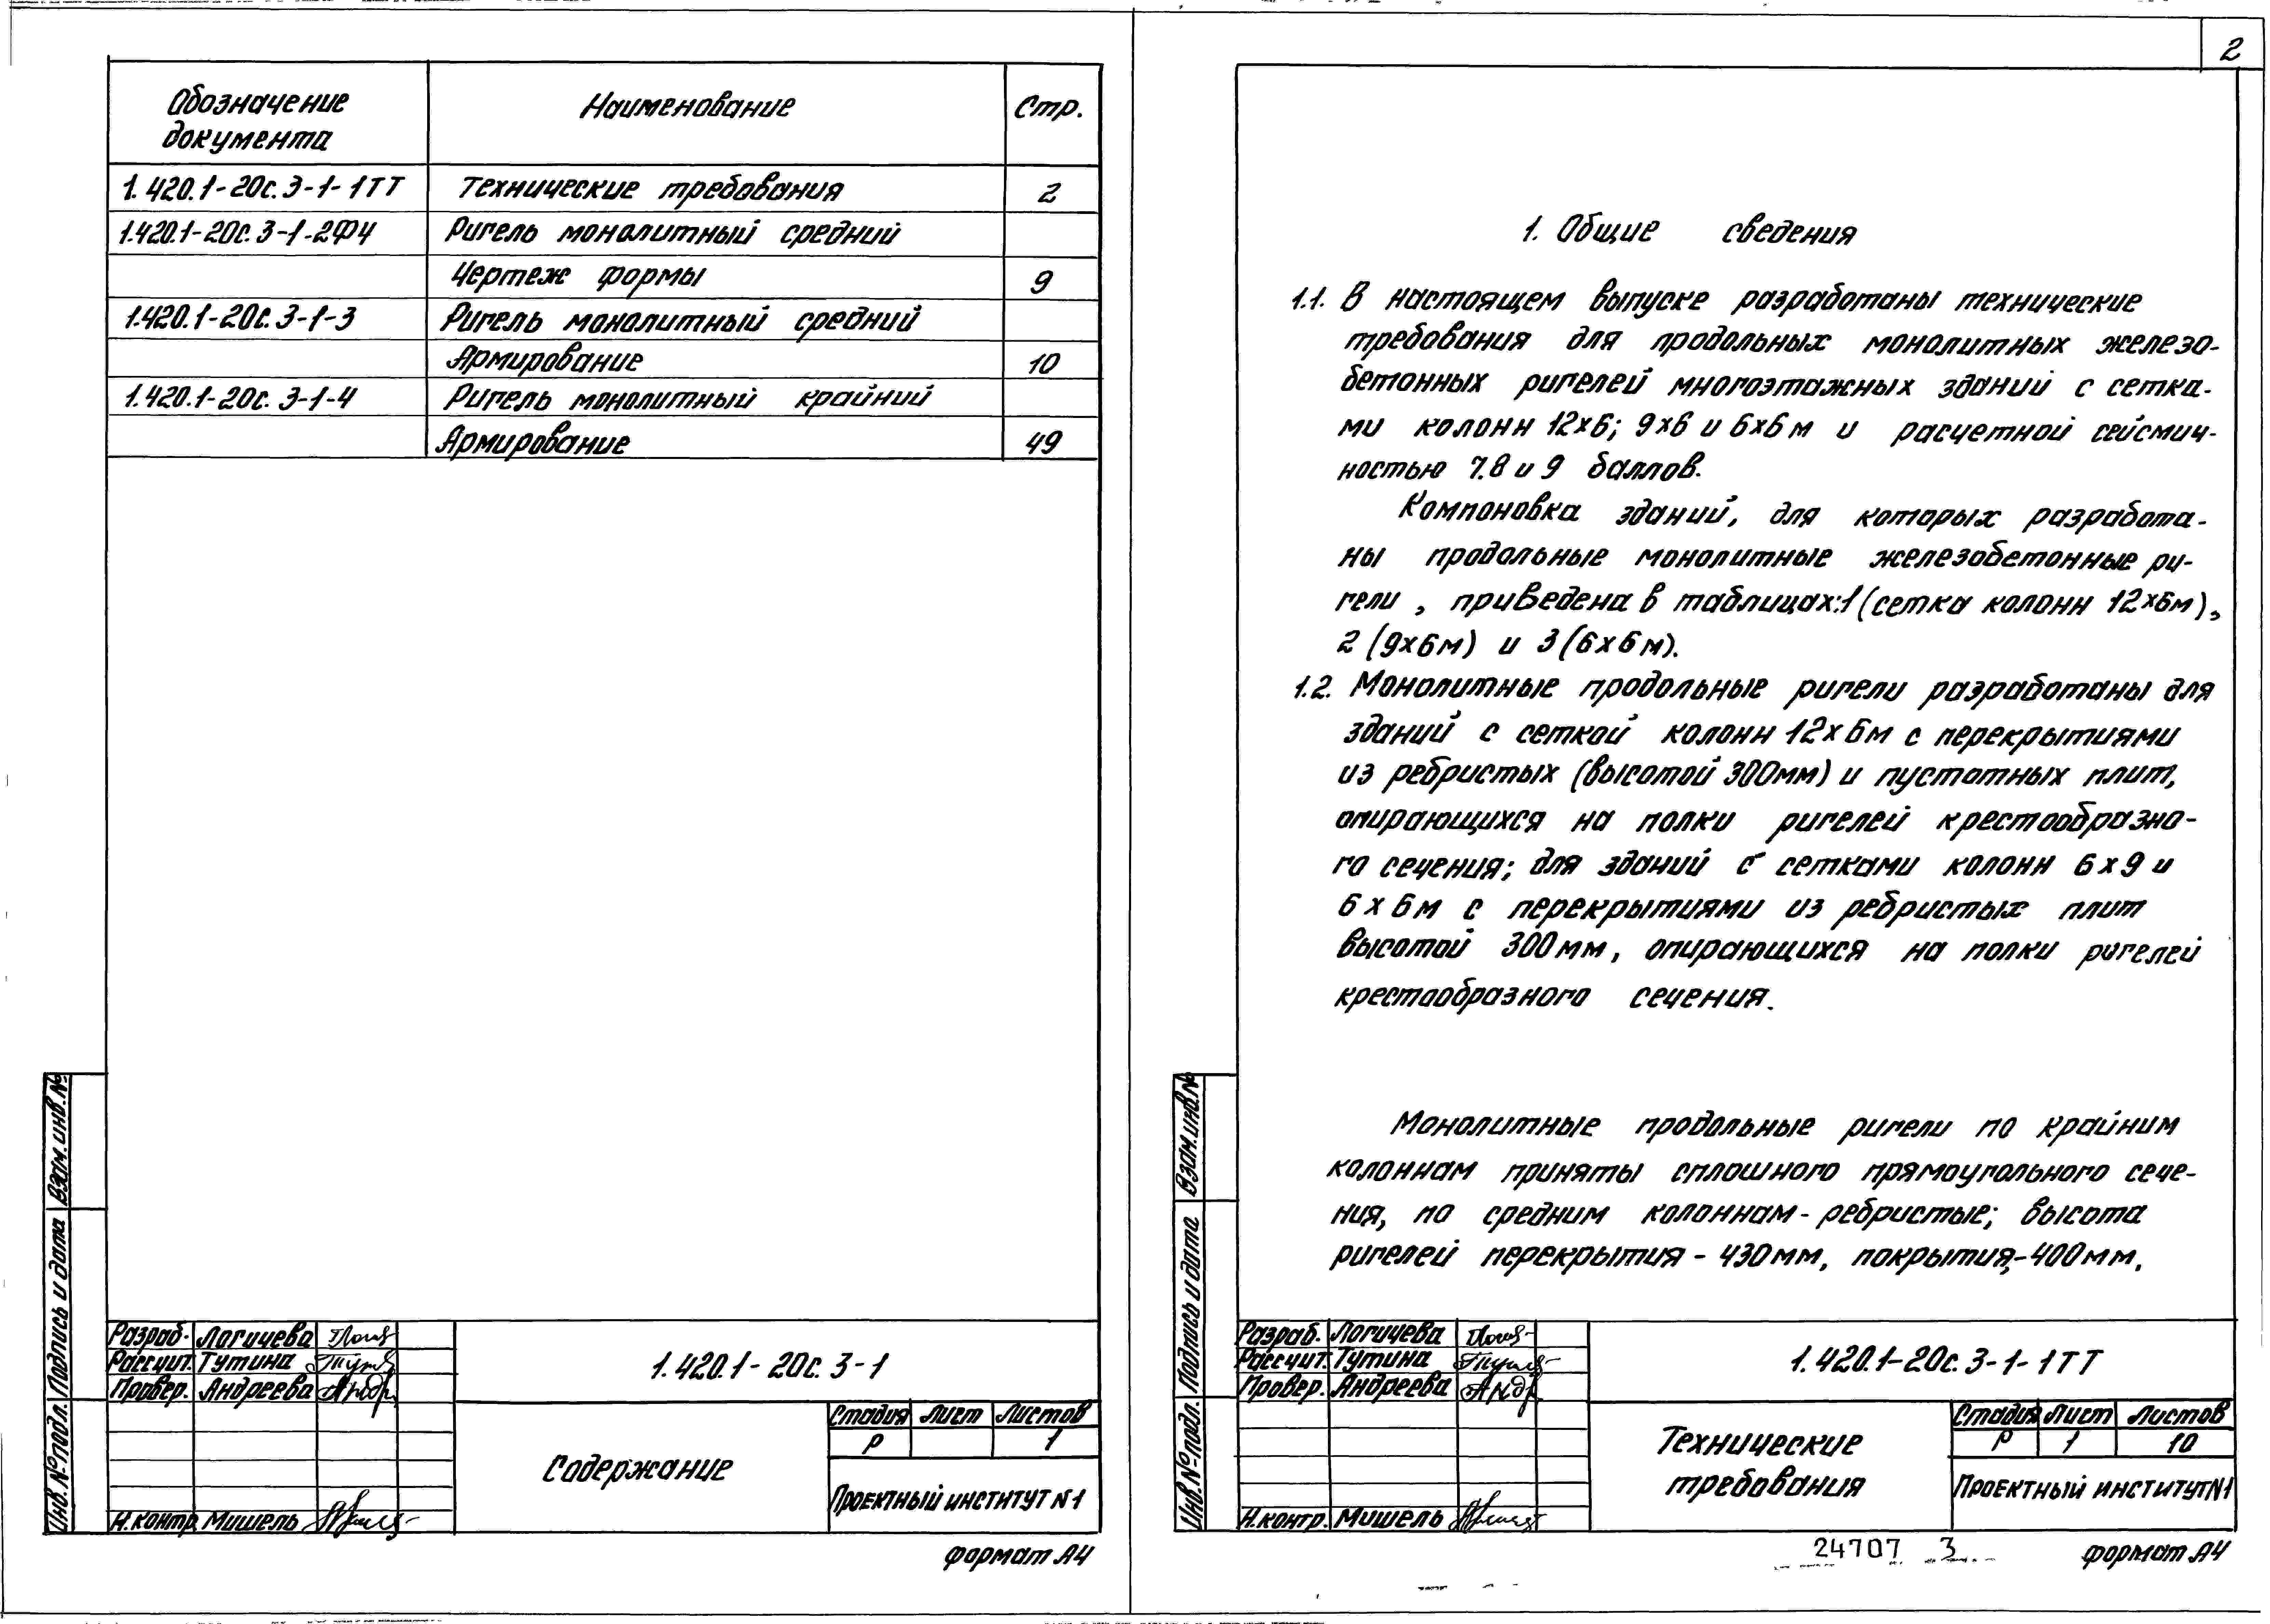 Обозначение документа Наименование Стр.
1.420.1-20с.3-1-1ТТ Технические требования 2
1.420.1-20с.3-1-2ФЧ Ригель монолитный средний
Чертеж формы 9
1.420.1-20с.3-1-3 Ригель монолитный средний
Армирование 10
1.420.1-20с.3-1-4 Ригель монолитный крайний
Армирование 49
Взам.инв.№
Подпись и дата
Инв.№подл.
Разраб. Логичева
Рассчит. Тутина
Провер. Андреева
Н.контр. Мишель
1.420.1-20с.3-1
Содержание
Стадия Лист Листов
Р 1
Проектный институт N1
Формат А4
2
1. Общие сведения
1.1. В настоящем выпуске разработаны технические
требования для продольных монолитных железо-
бетонных ригелей многоэтажных зданий с сетка-
ми колонн 12х6; 9х6 и 6х6м и расчетной сейсмич-
ностью 7.8 и 9 баллов.
Компоновка зданий, для которых разработа-
ны продольные монолитные железобетонные ри-
гели, приведена в таблицах:1 (сетка колонн 12х6м),
2 (9х6м) и 3 (6х6м).
1.2. Монолитные продольные ригели разработаны для
зданий с сеткой колонн 12х6м с перекрытиями
из ребристых (высотой 300мм) и пустотных плит,
опирающихся на полки ригелей крестообразно-
го сечения; для зданий с сетками колонн 6х9 и
6х6м с перекрытиями из ребристых плит
высотой 300мм, опирающихся на полки ригелей
крестообразного сечения.
Монолитные продольные ригели по крайним
колоннам приняты сплошного прямоугольного сече-
ния, по средним колоннам - ребристые; высота
ригелей перекрытия - 430мм, покрытия,-400мм.
Взам.инв.№
Подпись и дата
Инв.№подл.
Разраб. Логичева
Рассчит. Тутина
Провер. Андреева
Н.контр. Мишель
1.420.1-20с.3-1-1ТТ
Технические
требования
Стадия Лист Листов
Р 1 10
Проектный институт N1
24707 3
Формат А4